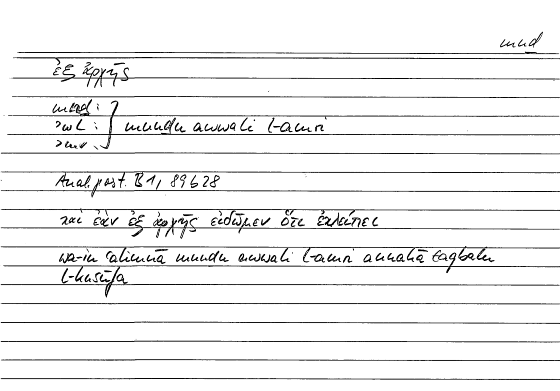 mnd
ἐξ ἀρχῆς
mnd :
ʾwl : } mundu awwali l-amri
ʾmr :
Anal. post. B 1, 89 b 28
καὶ ἐὰν ἐξ ἀρχῆς εἰδῶμεν ὅτι ἐκλείπει
wa-in ʿalimnā mundu awwali l-amri annahā taqbalu
l-kusūfa